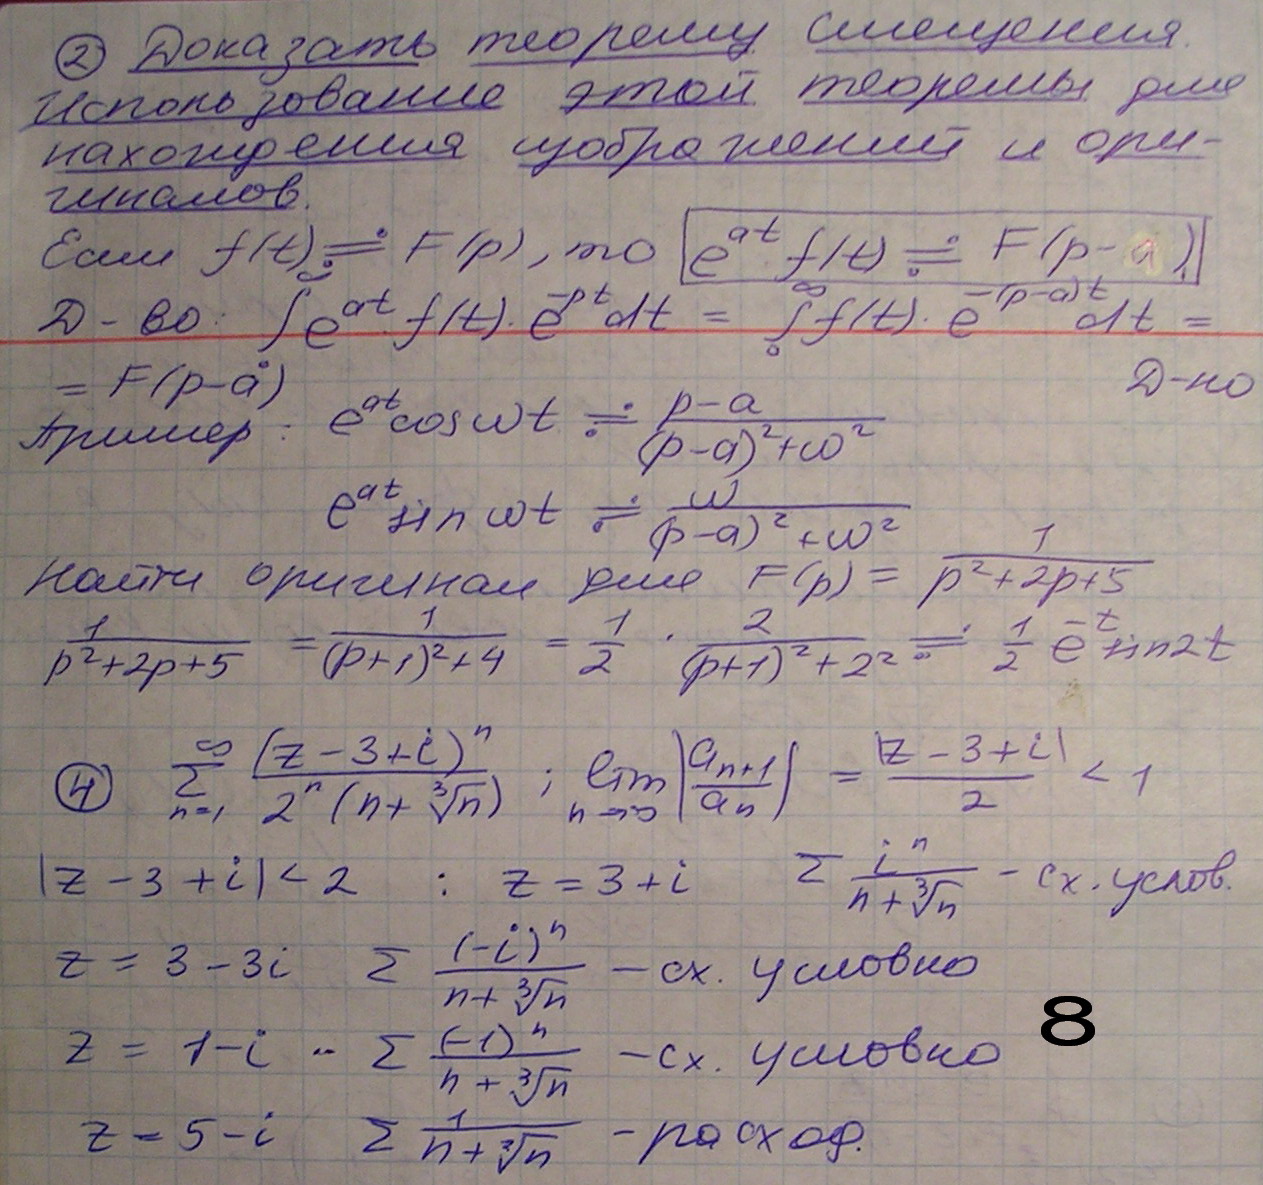 ② Доказать теорему смещения.
Использование этой теоремы для
нахождения изображений и ори-
гиналов.
Если f(t) ≓ F(p), то e^{at} f(t) ≓ F(p-a)
Д-во: ∫e^{at} f(t)·e^{-pt}dt = ∫_0^∞ f(t)·e^{-(p-a)t}dt =
= F(p-a) Д-но
Пример: e^{at}cos ωt ≓ (p-a)/((p-a)²+ω²)
e^{at}sin ωt ≓ ω/((p-a)²+ω²)
Найти оригинал для F(p) = 1/(p²+2p+5)
1/(p²+2p+5) = 1/((p+1)²+4) = 1/2 · 2/((p+1)²+2²) ≓ 1/2 e^{-t} sin2t
④ ∑_{n=1}^∞ (z-3+i)^n/(2^n (n+∛n)) ; lim_{n→∞} |a_{n+1}/a_n| = |z-3+i|/2 < 1
|z-3+i|<2 : z=3+i ∑ i^n/(n+∛n) - сх. услов.
z = 3-3i ∑ (-i)^n/(n+∛n) - сх. условно
z = 1-i .. ∑ (-1)^n/(n+∛n) - сх. условно
8
z = 5-i ∑ 1/(n+∛n) - расход.